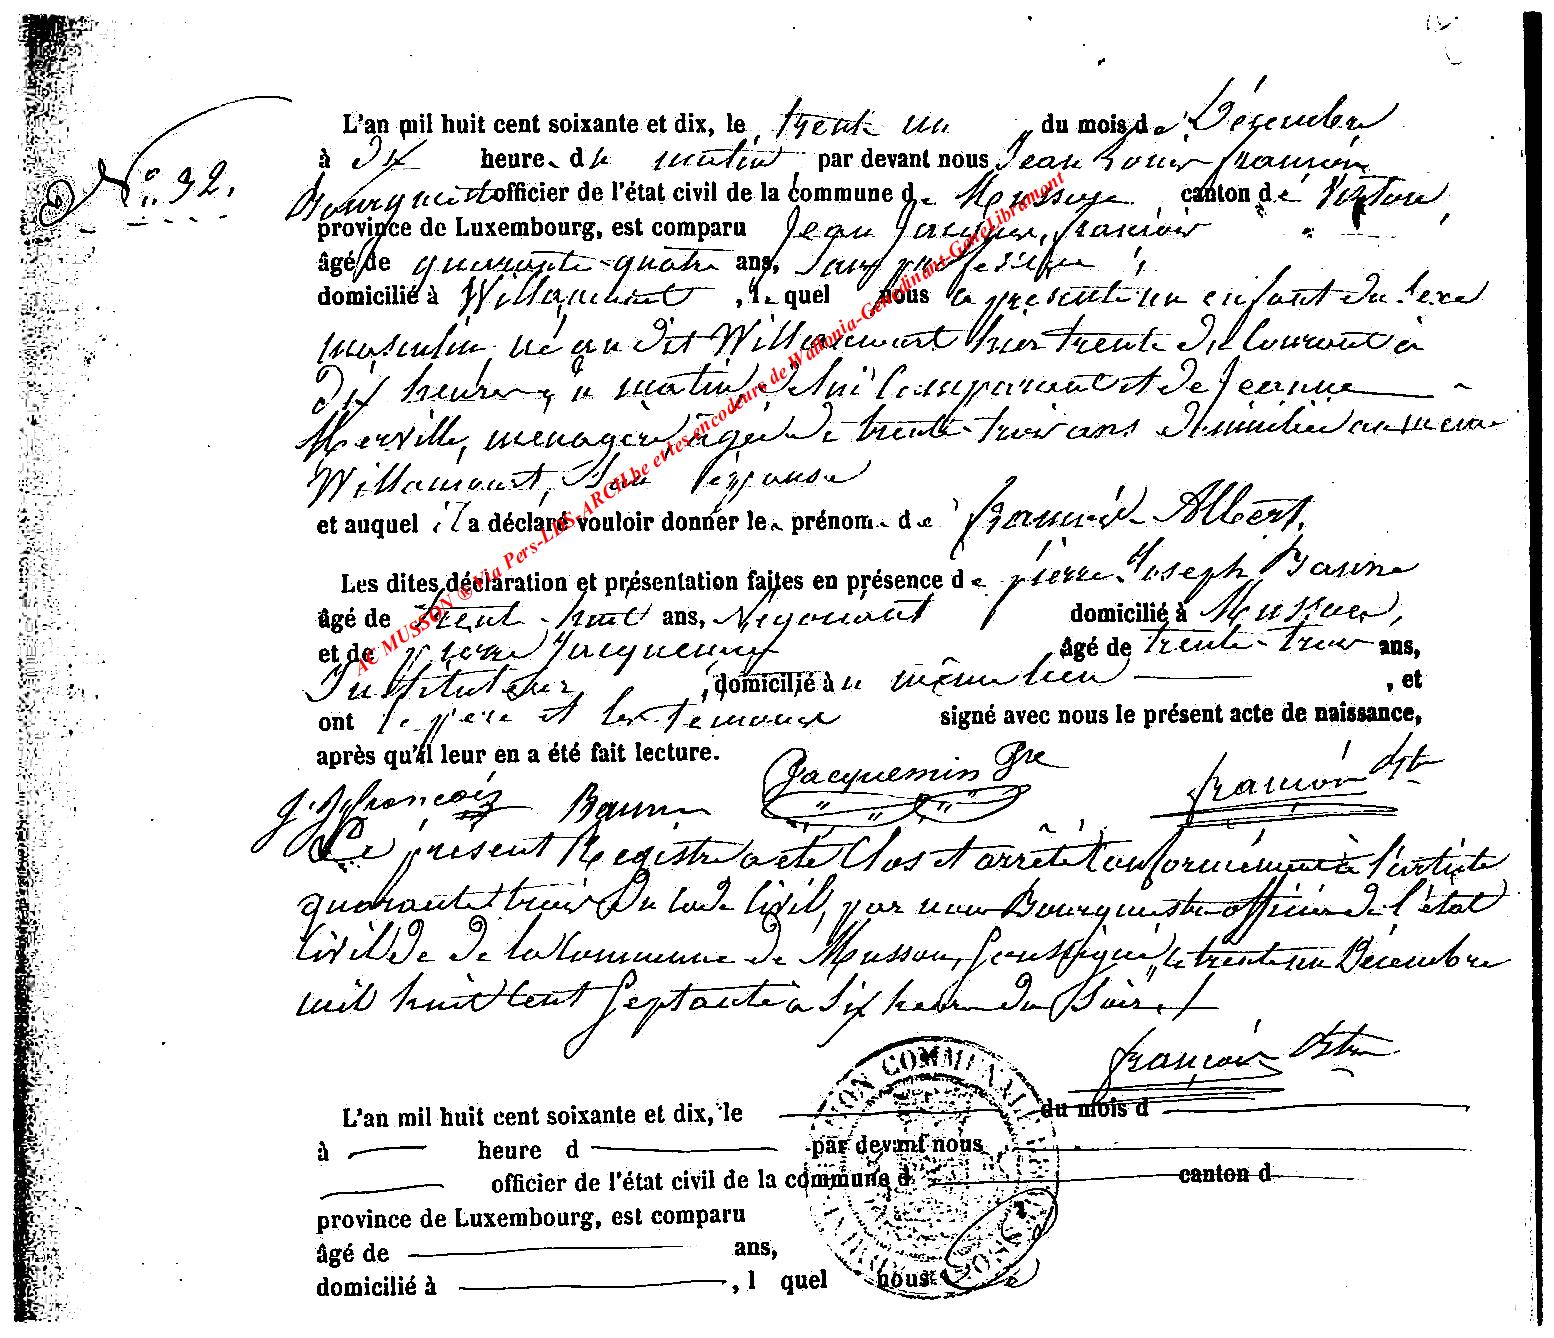 N° 32.
L'an mil huit cent soixante et dix, le trente un du mois de Décembre
à dix heure du matin par devant nous Jean Louis François
Bourgmestre officier de l'état civil de la commune de Musson canton de Virton,
province de Luxembourg, est comparu Jean Jacques François
âgé de quarante-quatre ans, sans profession,
domicilié à Willancourt, lequel nous a présenté un enfant du sexe
masculin, né au dit Willancourt hier trente du Courant à
dix heures du matin, de lui Comparant et de Jeanne
Merville, ménagère âgée de trente-trois ans domiciliée au même
Willancourt, Son épouse
et auquel il a déclaré vouloir donner le prénom de François-Albert.
Les dites déclaration et présentation faites en présence de pierre Joseph Baune
âgé de trente-huit ans, Négociant domicilié à Musson,
et de pierre Jacquemin âgé de trente-trois ans,
Instituteur, domicilié au même lieu, et
ont le père et les témoins signé avec nous le présent acte de naissance,
après qu'il leur en a été fait lecture.
J. J. françois Jacquemin Pre françois
Le présent Registre a été Clos et arrêté Conformément à l'article
quarante trois Du Code Civil, par nous Bourgmestre officier de l'état
Civil De de la Commune de Musson, Soussigné, le trente un Décembre
mil huit Cent Septante à Six heures du Soir.
françois
L'an mil huit cent soixante et dix, le du mois d
à heure d par devant nous
officier de l'état civil de la commune d canton d
province de Luxembourg, est comparu
âgé de ans,
domicilié à , l quel nous
AC MUSSON ® Via Pers-LUS-ARCH.be et les encodeurs de Wallonia-Genedinant-GeneLibramont
COMMUNALE